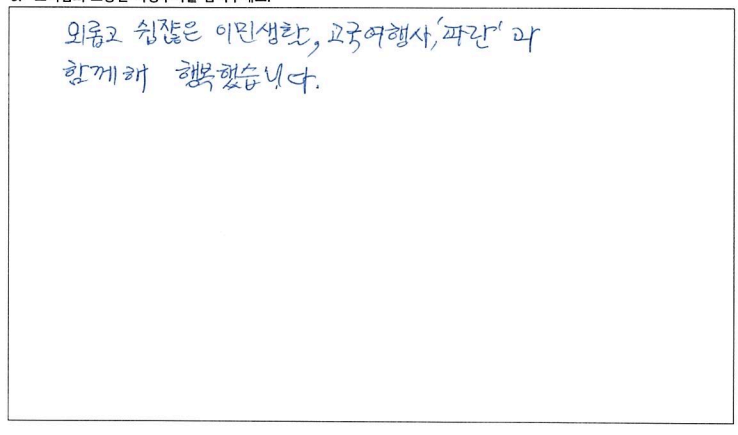 외롭고 쉽잖은 이민생활, 고국여행사, '파란' 과
함께해 행복했습니다.